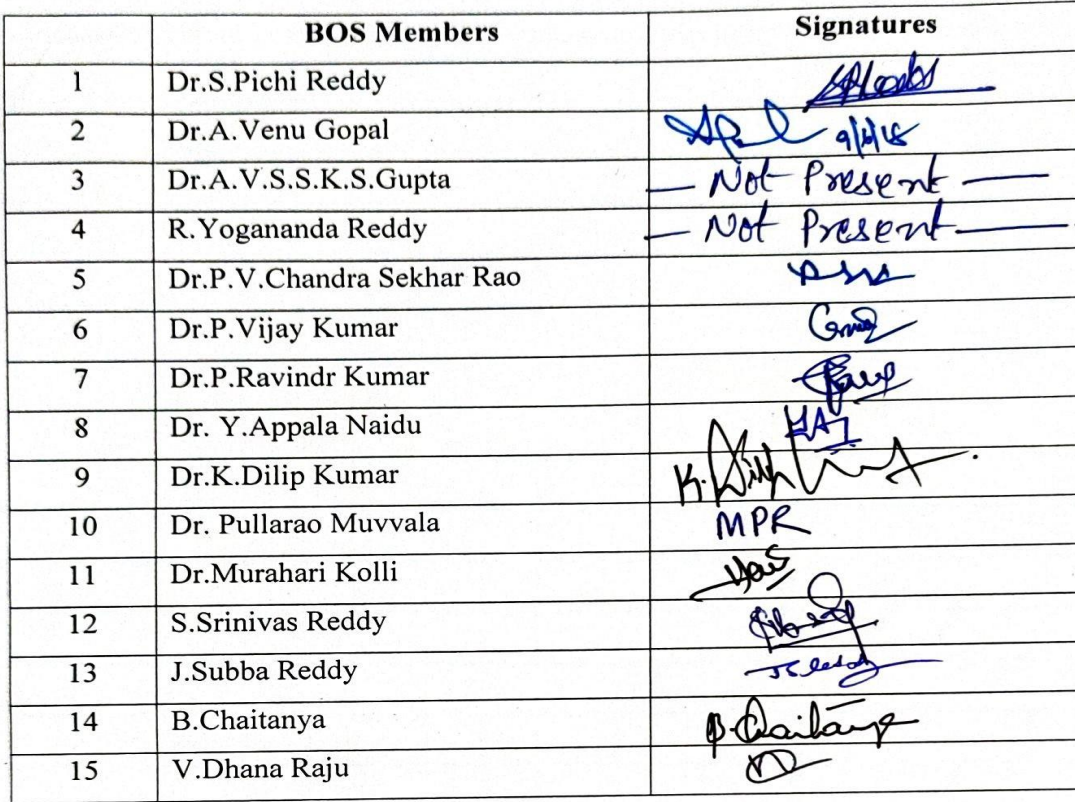 BOS Members Signatures
1 Dr.S.Pichi Reddy
2 Dr.A.Venu Gopal
3 Dr.A.V.S.S.K.S.Gupta — Not Present —
4 R.Yogananda Reddy — Not Present —
5 Dr.P.V.Chandra Sekhar Rao
6 Dr.P.Vijay Kumar
7 Dr.P.Ravindr Kumar
8 Dr. Y.Appala Naidu
9 Dr.K.Dilip Kumar
10 Dr. Pullarao Muvvala MPR
11 Dr.Murahari Kolli
12 S.Srinivas Reddy
13 J.Subba Reddy
14 B.Chaitanya B.Chaitanya
15 V.Dhana Raju